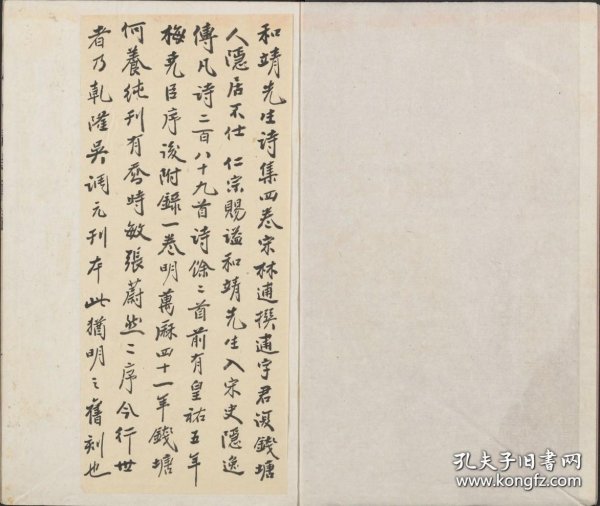 和靖先生詩集四卷宋林逋撰逋字君復錢塘
人隱居不仕仁宗賜諡和靖先生入宋史隱逸
傳凡詩二百八十九首詩餘二首前有皇祐五年
梅堯臣序後附錄一卷明萬厤四十一年錢塘
何養純刊有喬時敏張蔚然二序今行世
者乃乾隆吳調元刊本此猶明之舊刻也
孔夫子旧书网
www.kongfz.com